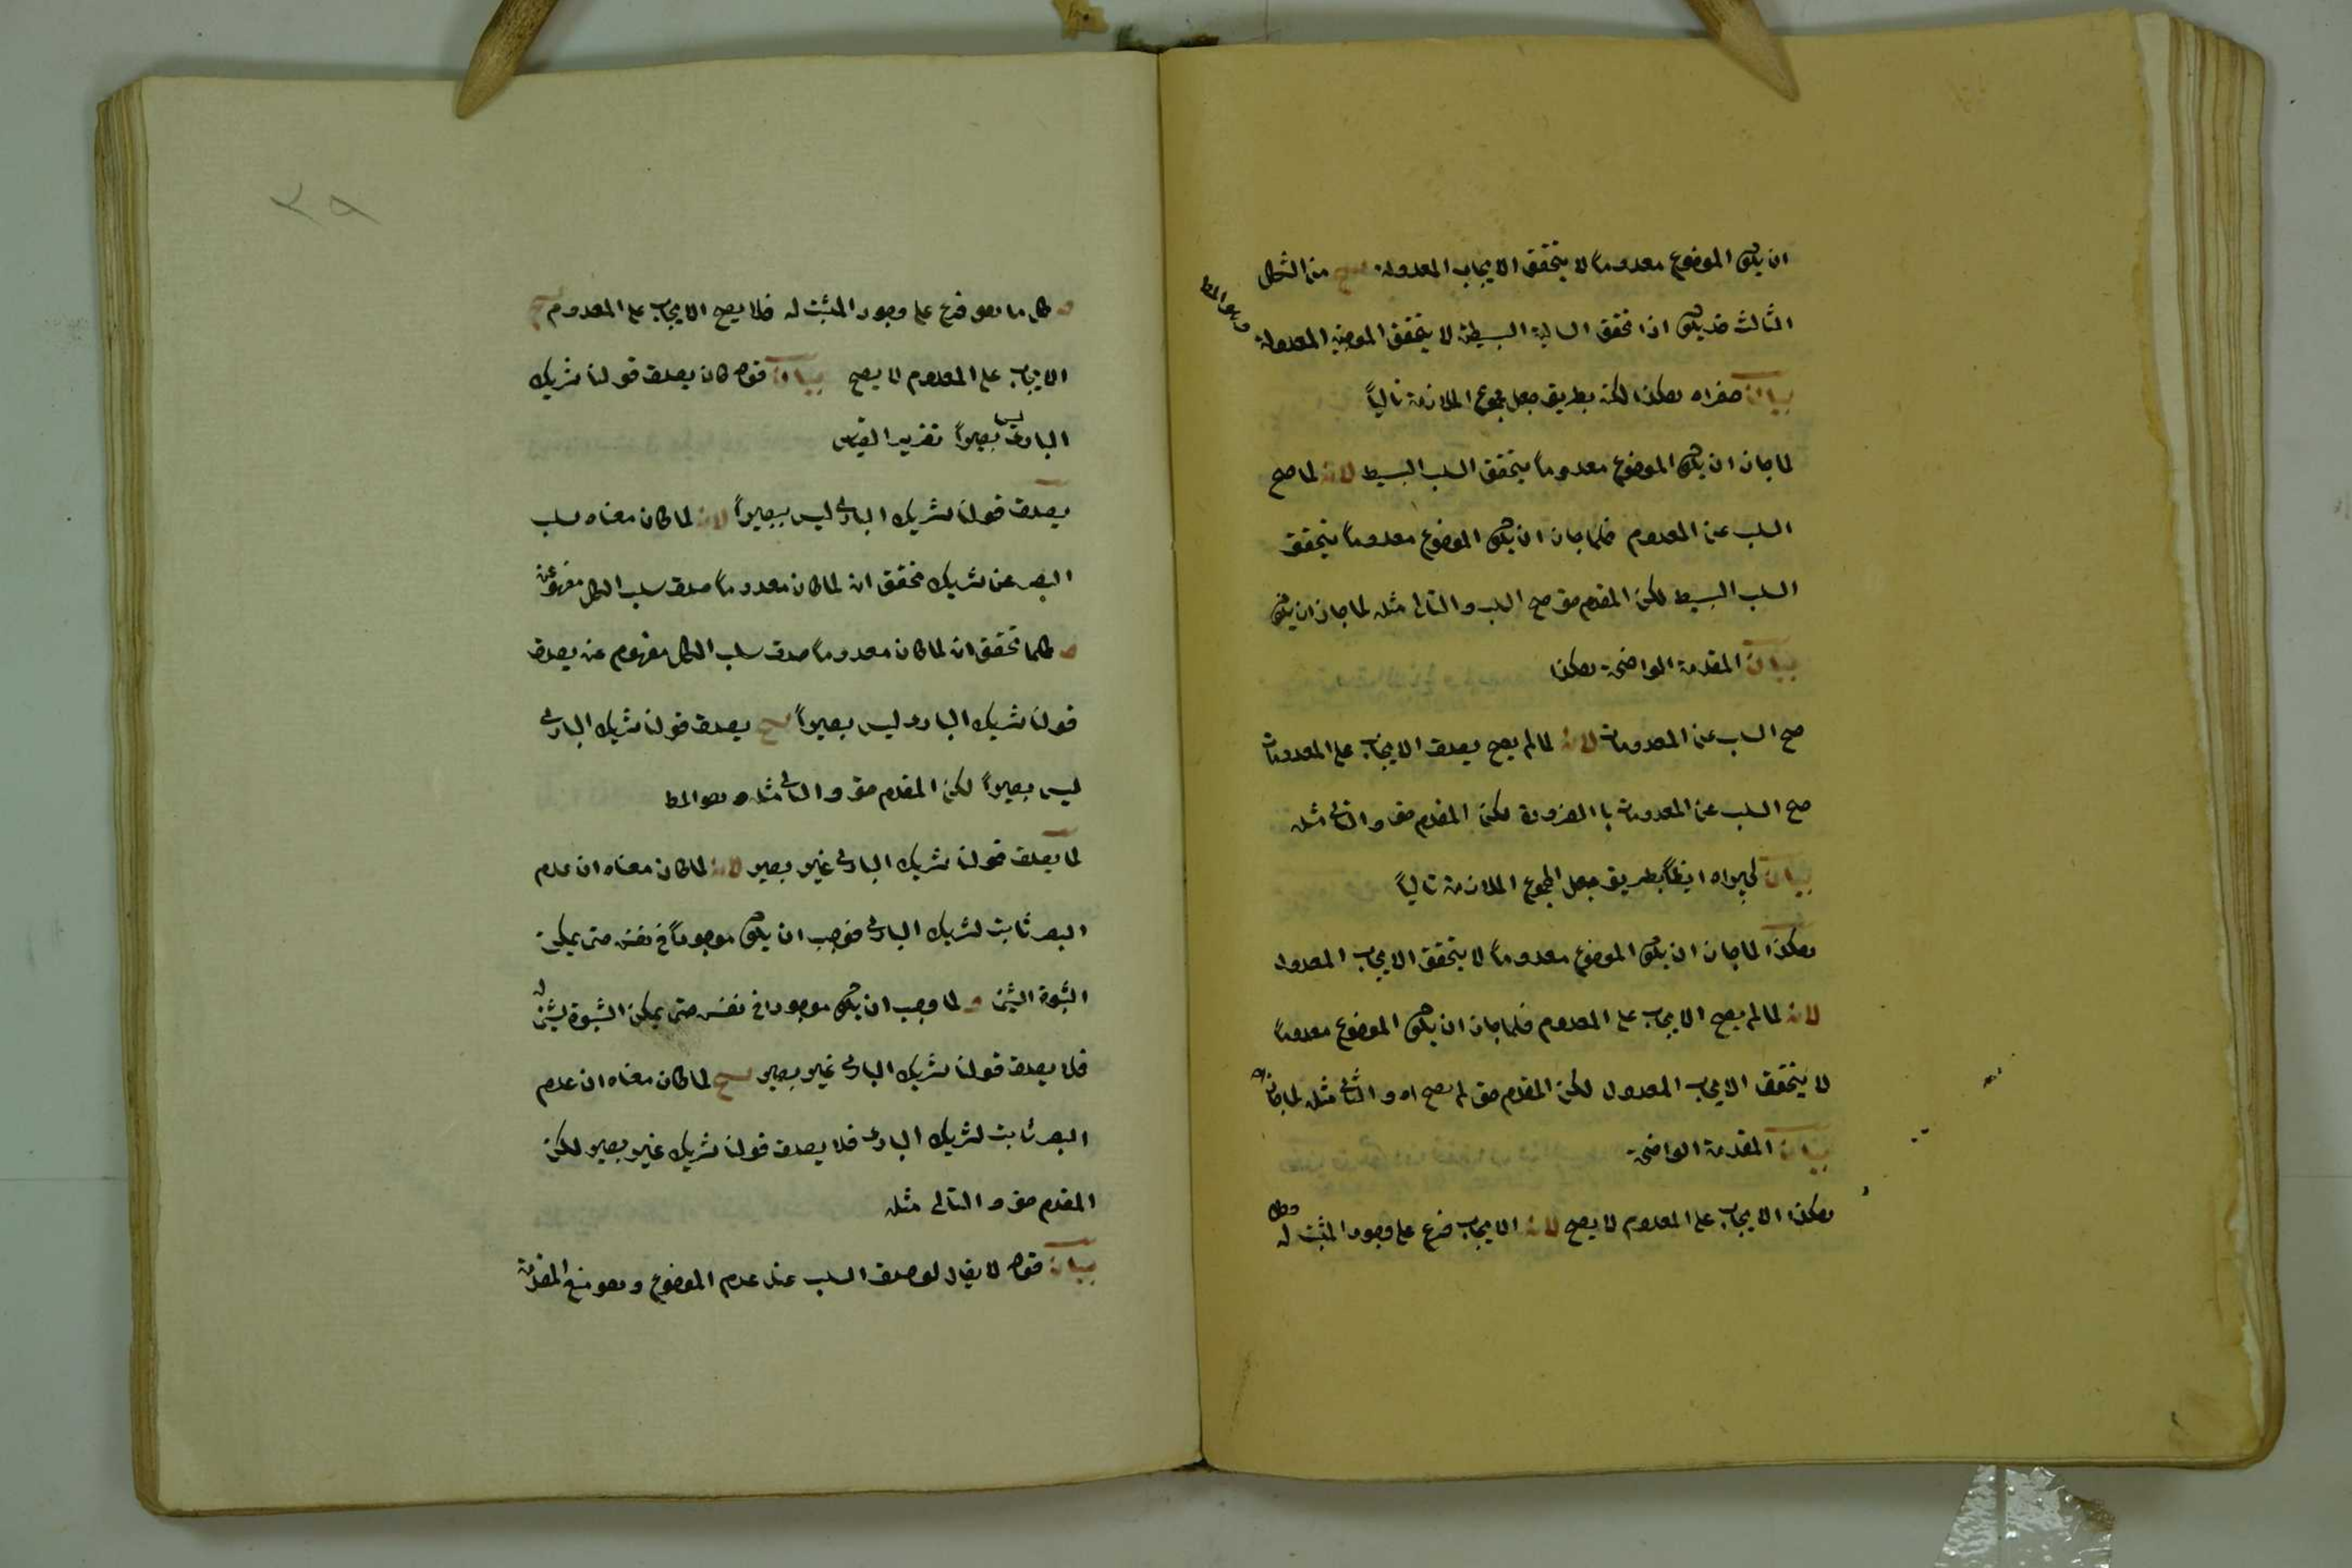 ان يكون الموضوع معدوما لا يتحقق الايجاب المعدولة ينتج من الشكل
الثالث قد يكون اذا تحقق السالبة البسيطة لا يتحقق الموجبة المعدولة
وهو المط
بيان صغراه هكذا لكن بطريق جعل مجموع الملازمة تالياً
لما جاز ان يكون الموضوع معدوما يتحقق السلب البسيط لانه لما صح
السلب عن المعدوم فلما جاز ان يكون الموضوع معدوما يتحقق
السلب البسيط لكن المقدم حق صح السلب والتالى مثله لما جاز ان يكون
بيان المقدمة الواضحة هكذا
صح السلب عن المعدومات لانه لما لم يصح يصدق الايجاب على المعدومات
صح السلب عن المعدومات با الضرورة لكن المقدم حق والتالى مثله
بيان كبراه ايضاً بطريق جعل المجموع الملازمة تالياً
هكذا لما جاز ان يكون الموضوع معدوما لا يتحقق الايجاب المعدول
لانه لما لم يصح الايجاب على المعدوم فلما جاز ان يكون الموضوع معدوماً
لا يتحقق الايجاب المعدول لكن المقدم حق لم يصح اه والتالى مثله لما جاز اه
بيان المقدمة الواضحة
هكذا الايجاب على المعدوم لا يصح لانه الايجاب فرع على وجود المثبت له وكل
٣٩
و كل ما هو فرع على وجود المثبت له فلا يصح الايجاب على المعدوم ينتج
الايجاب على المعدوم لا يصح بيان قوله كان يصدق قولنا شريك
البارى ليس بصيراً تقرير القياس
يصدق قولنا شريك البارى ليس ببصيراً لانه لما كان معناه سلب
البصر عن شريك تحقق ان لما كان معدوما صدق سلب الكل مفهوم عنه
و كلما تحقق ان لما كان معدوما صدق سلب الكل مفهوم عنه يصدق
قولنا شريك البارى ليس بصيراً ينتج يصدق قولنا شريك البارى
ليس بصيراً لكن المقدم حق والتالى مثله وهو المط
لما يصدق قولنا شريك البارى غير بصير لانه لما كان معناه ان عدم
البصر ثابت لشريك البارى فوجب ان يكون موجوداً فى نفسه حتى يمكن
الثبوة الشئ و لما وجب ان يكون موجودا فى نفسه حتى يمكن الثبوة لشئ له
فلا يصدق قولنا شريك البارى غير بصير ينتج لما كان معناه ان عدم
البصر ثابت لشريك البارى فلا يصدق قولنا شريك غير بصير لكن
المقدم حق والتالى مثله
بيان قوله لا يقال لو صدق السلب عند عدم الموضوع وهو منع المقدمة